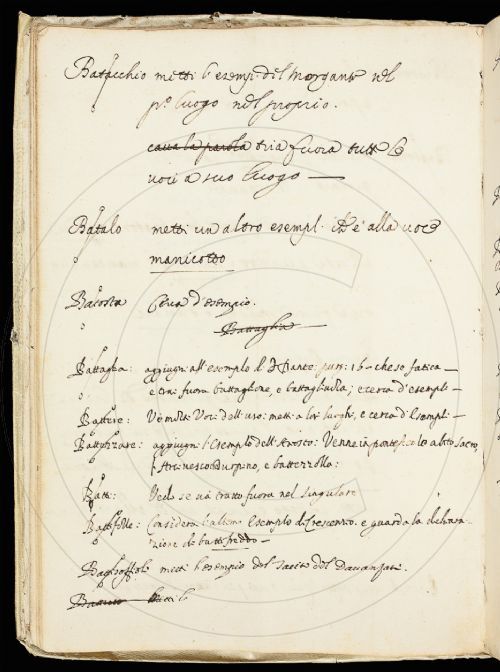 Batacchio metti l'esempi. del Morgante nel
p.o luogo nel proprio.
caua la parola tria fuora tutte le
uoci a suo luogo —
Batalo metti un altro esempl. ch'è alla uoce
manicotto
Batosta Cerca d'esempio.
Battaglia
Battaglia: aggiugni all'esempio di Dante: purg: 16 — che so fatica —
e trai fuora battaglione, e battagliuola; e cerca d'esempli —
Battere: V'è molte Voci dell'uso: metti a lor luoghi, e cerca d'Esempli —
Battezzare: aggiugni l'Esempio dell'Ariosto: Venne in pontificale abito sacro,
e battezzolla:
Batti: Vedo se ua tratto fuora nel singulare
Battifolle: Considera l'ultimo Esempio di Crescenzo. e guarda la dichiara-
zione di battifreddo —
metti l'esempio del Tacito del Dauanzati.